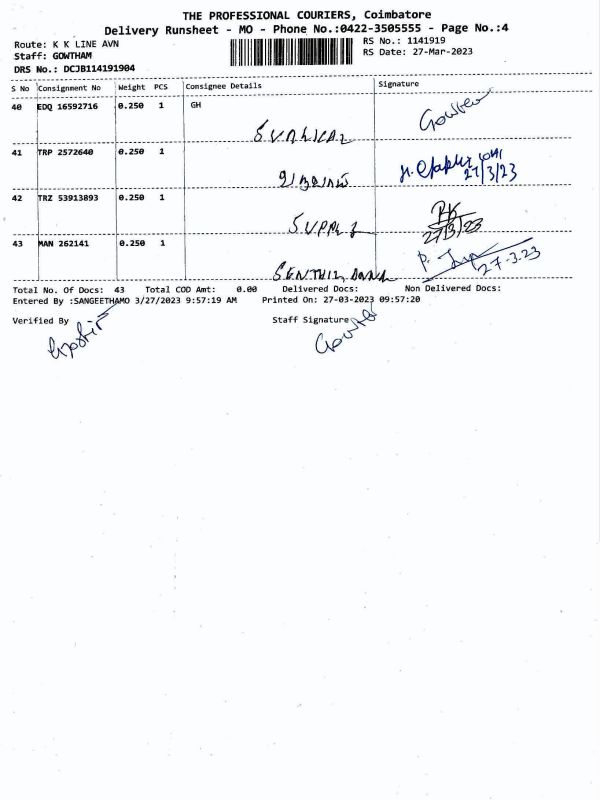 THE PROFESSIONAL COURIERS, Coimbatore
Delivery Runsheet - MO - Phone No.:0422-3505555 - Page No.:4
Route: K K LINE AVN
RS No.: 1141919
Staff: GOWTHAM
RS Date: 27-Mar-2023
DRS No.: DCJB114191904
S No Consignment No Weight PCS Consignee Details Signature
40 EDQ 16592716 0.250 1 GH
41 TRP 2572640 0.250 1
27/3/23
42 TRZ 53913893 0.250 1
27/3/23
43 MAN 262141 0.250 1
27-3-23
Total No. Of Docs: 43 Total COD Amt: 0.00 Delivered Docs: Non Delivered Docs:
Entered By :SANGEETHAMO 3/27/2023 9:57:19 AM Printed On: 27-03-2023 09:57:20
Verified By Staff Signature